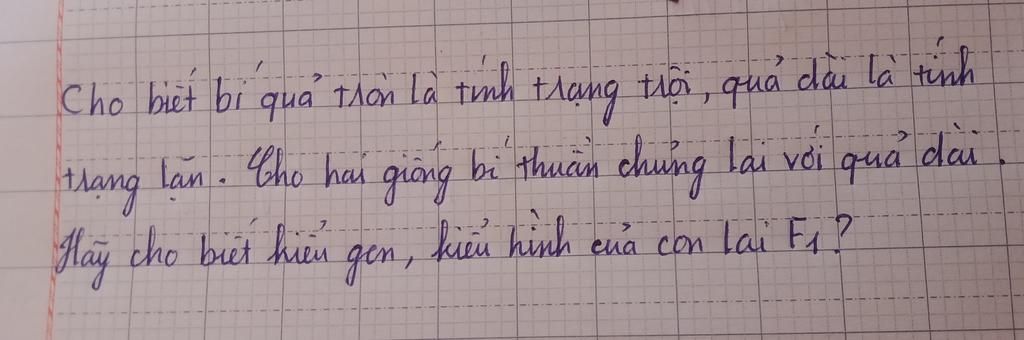 Cho biết bí quả tròn là tính trạng trội, quả dài là tính
trạng lặn. Cho hai giống bí thuần chủng lai với quả dài.
Hãy cho biết kiểu gen, kiểu hình của con lai F1?